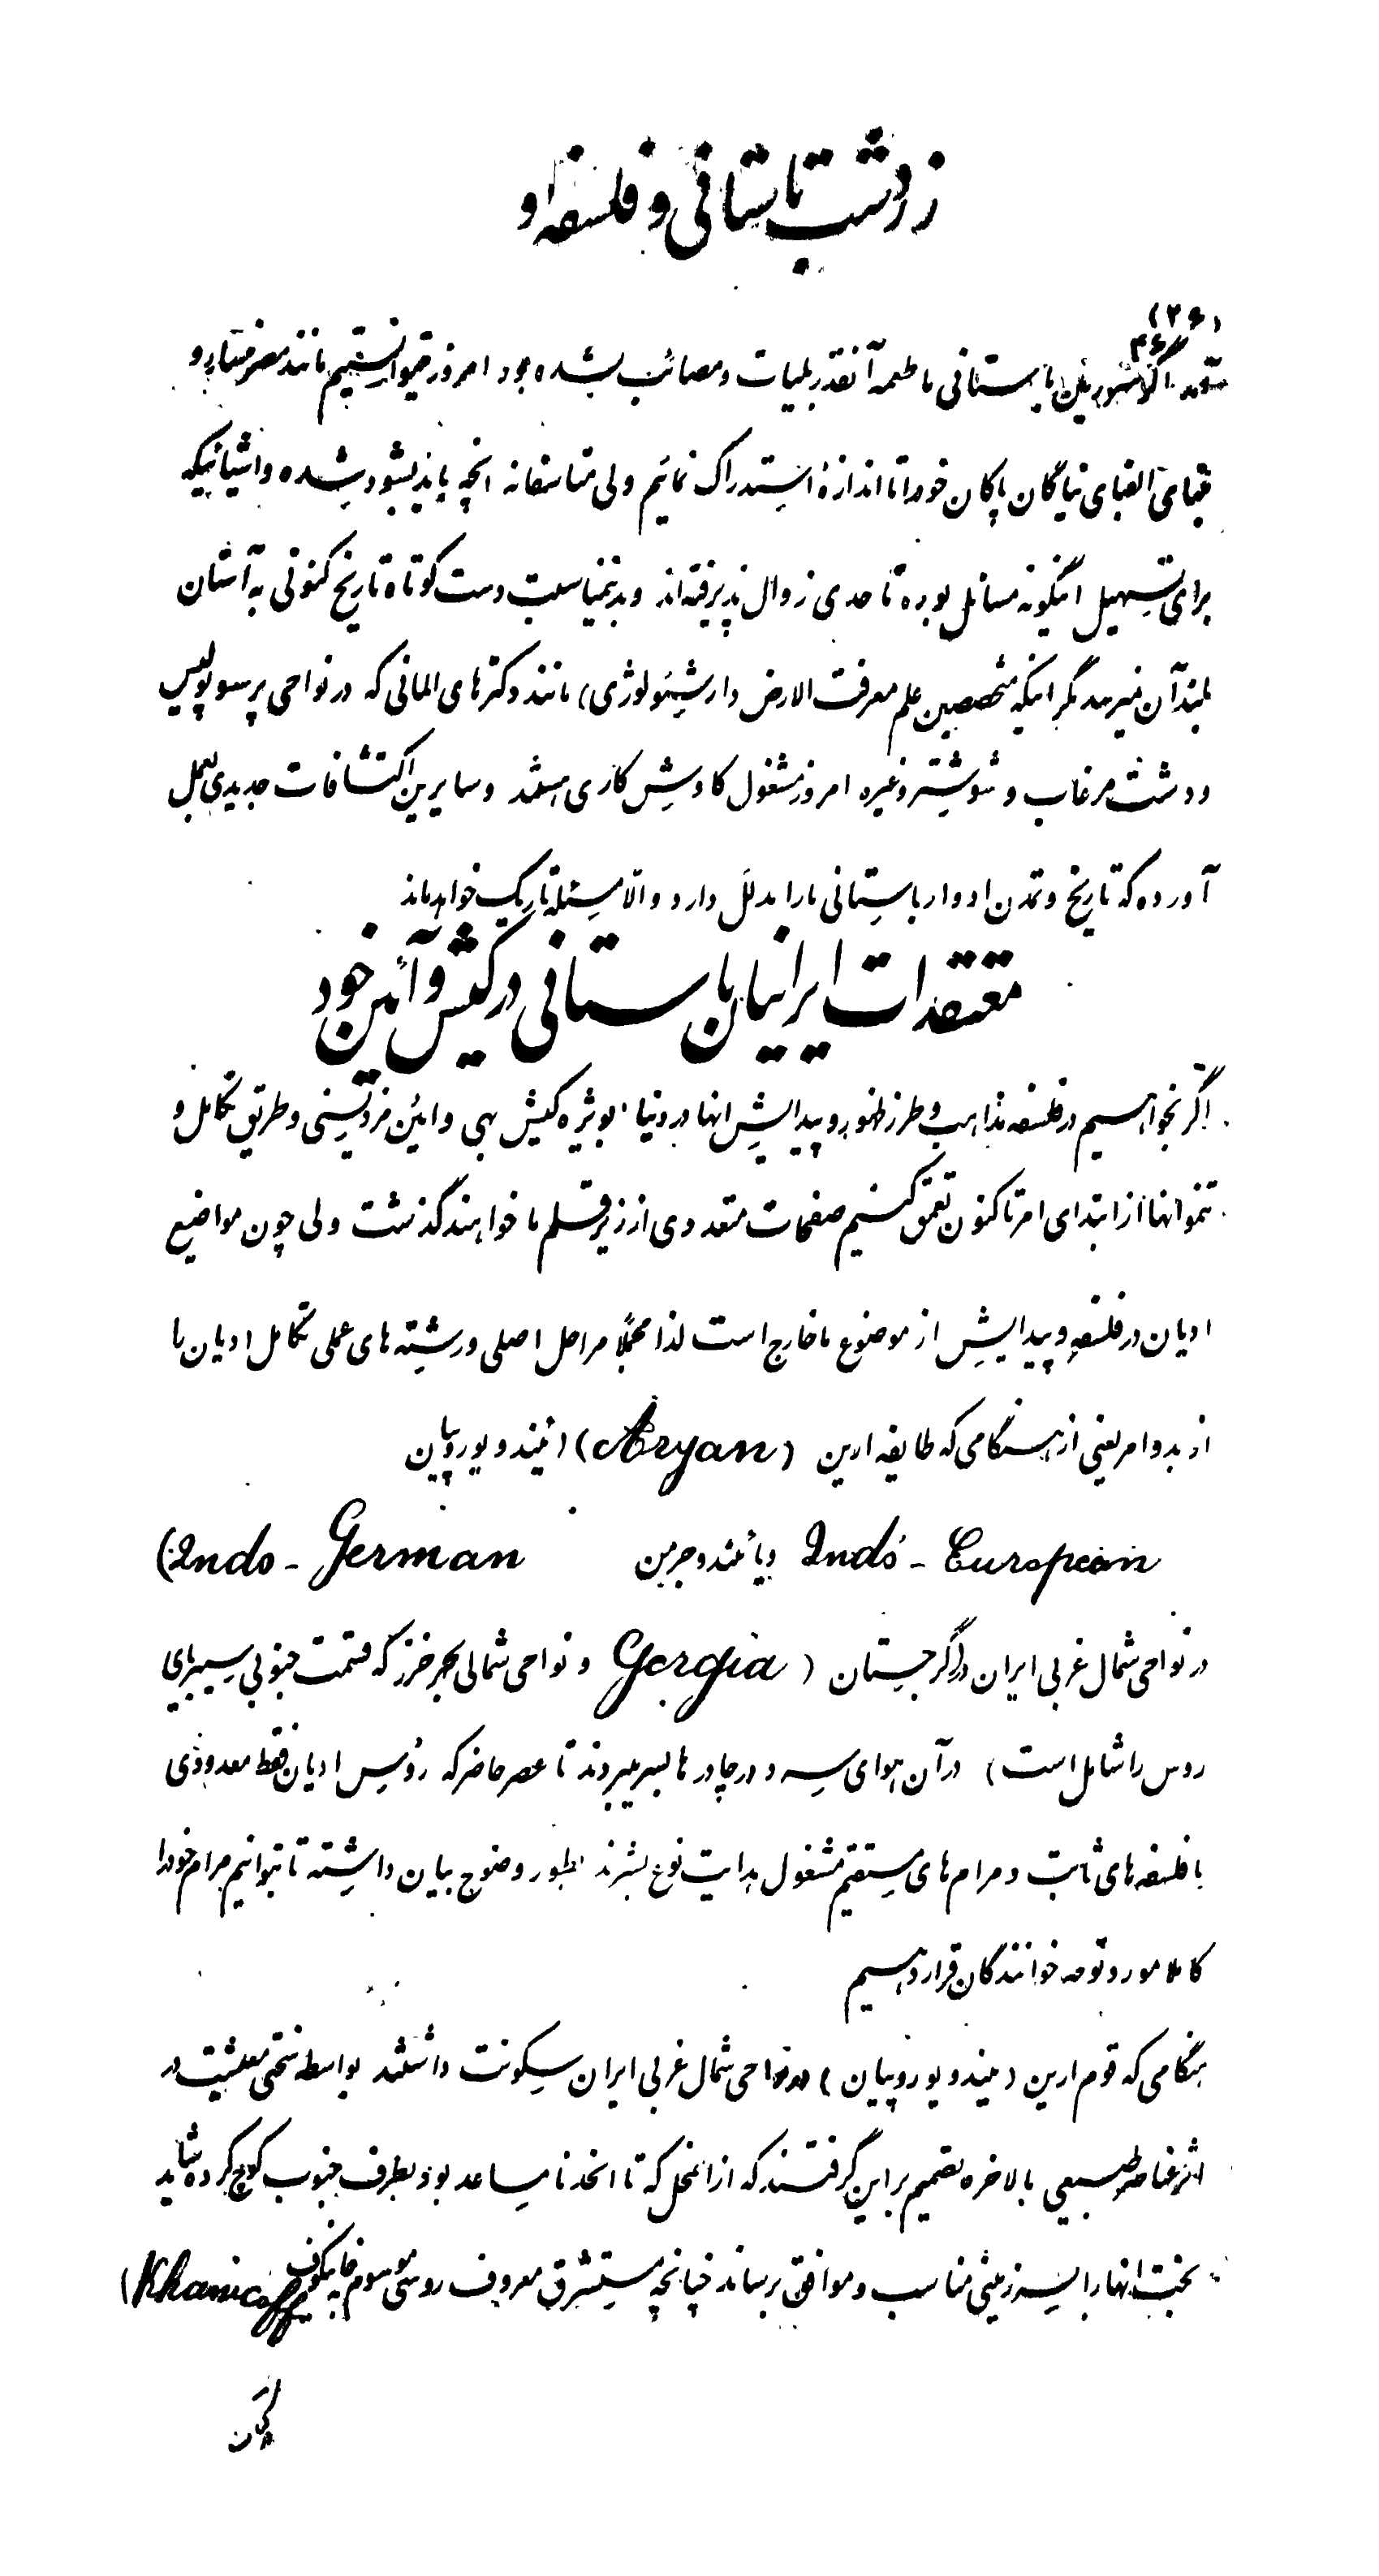 زردشت باستانی و فلسفه او
(۲۶)
اگر کشور باستانی ما طعمه آنقدر بلیات و مصائب نشده بود امروز میتوانستیم مانند مصر
قبامی الفبای نیاگان پاکان خود را تا اندازهٔ استدراک نمائیم ولی متاسفانه انچه باید بشود شده و اشیائیکه
برای تسهیل اینگونه مسائل بوده تا حدی زوال پذیرفته‌اند و بدینمناسبت دست کوتاه تاریخ کنونی به آستان
بلند آن نمیرسد مگر اینکه متخصصین علم معرفت الارض (ارشیئولوژی) مانند دکترهای المانی که در نواحی پرسوپولیس
و دشت مرغاب و شوشتر و غیره امروز مشغول کاوش کاری هستند و سایرین اکتشافات جدیدی بعمل
آورده که تاریخ و تمدن ادوار باستانی ما را مدلل دارد و الّا مسئله تاریک خواهد ماند
معتقدات ایرانیان باستانی در کیش و آئین خود
اگر بخواهیم در فلسفه مذاهب و طرز ظهور و پیدایش انها در دنیا بویژه کیش بهی و ائین مزدیسنی و طریق تکامل و
نمو انها از ابتدای امر تا کنون تعمق کنیم صفحات متعددی از زیر قلم ما خواهند گذشت ولی چون مواضیع
ادیان در فلسفه و پیدایش از موضوع ما خارج است لذا مجملاً مراحل اصلی و رشته های عملی تکامل ادیان را
از بدو امر یعنی از هنگامی که طایفه ارین (Aryan) (هیندو یوروپیان
Indo - European و یا هندو جرمن Indo - German)
در نواحی شمال غربی ایران در گرجستان (Gorgia و نواحی شمالی بحر خزر که قسمت جنوبی سیبریای
روس را شامل است) در آن هوای سرد در چادرها بسر میبردند تا عصر حاضر که رؤس ادیان فقط معدودی
با فلسفه های ثابت و مرام های مستقیم مشغول هدایت نوع بشرند بطور وضوح بیان داشته تا بتوانیم مرام خود را
کاملا مورد توجه خوانندگان قرار دهیم
هنگامی که قوم ارین (هیندو یوروپیان) در نواحی شمال غربی ایران سکونت داشتند بواسطه سختی معیشت در
اثر عناصر طبیعی بالاخره تصمیم بر این گرفتند که از انمحل که تا انحد نا مساعد بود بطرف جنوب کوچ کرده شاید
بخت انها را بسر زمینی مناسب و موافق برساند چنانچه مستشرق معروف روسی موسوم به خانیکوف (Khanicoff)